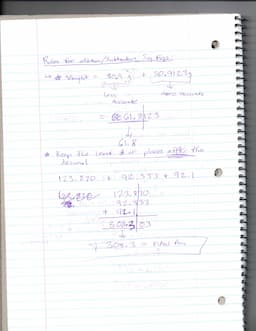 Rules for addition/Subtraction Sig Figs
↳ * Weight = 30.9 g + 30.9123g
↓ ↓
Less Accurate More Accurate
= 61.8123
↓
61.8
* Keep the least # of places after the decimal
123.820 + 92.333 + 92.1
123.8
92.333
+ 92.1
308.3
↳ 308.3 = Final Ans